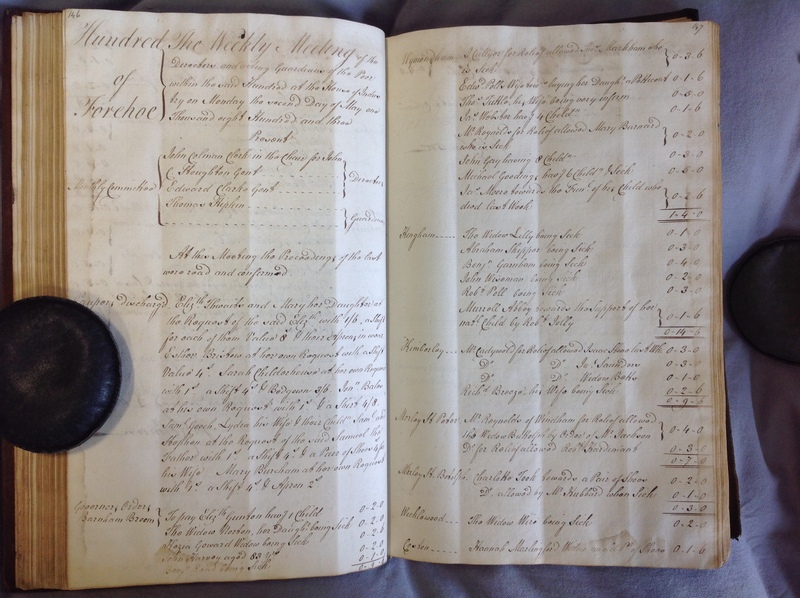 146
Hundred
of
Forehoe
The Weekly Meeting of the
Directors and acting Guardians of the Poor
within the said Hundred at the House of Indus
try on Monday the second Day of May one
Thousand eight Hundred and three
Present
John Colman Clerk in the Chair for John
Houghton Gent
Weekly Committee Edward Clarke Gent
Directors
Thomas
Guardian
At this Meeting the Proceedings of the last
were read and confirmed
Paupers discharged Eliz.th Thwaits and Mary her Daughter at
the Request of the said Eliz.th with 1/6 a Shift
for each of them Value 8.s & their Aprons in wear
Esther Bristow at her own Request with a Shift
Value 4.s Sarah Childerhouse at her own Request
with 1.s a Shift 4.s & Bedgown 3/6 Jon.n
at his own Request with 1.s & a Shirt 4/8
Sam.l Gooch, Lydia his Wife & their Child.n Sam.l and
Stephen at the Request of the said Samuel the
Father with 1.s a Shift 4.s & a Pair of Shoes 4/
his Wife Mary Burcham at her own Request
with 4.s a Shift 4.s & Apron 2.s
Governors Orders
Barnham Broom
To pay Eliz.th Gunton hav.g 1 Child 0-2-0
The Widow Horton, her Daugh.r being Sick 0-2-0
Goward Widow being Sick 0-2-
John Harvey aged 83 0-2-0
being Sick 0-1-0
147
Wymondham
for Relief allowed Markham who
is Sick 0-3-6
Edw.d Poll Wife tow.s buying her Daugh.r a Petticoat 0-1-6
Tho.s Tuttle, his Wife being very infirm 0-3-0
Ja.s Webster hav.g 4 Child.n 0-1-6
M.r Reynolds for Relief allowed Mary Barnard
who is Sick 0-2-0
John Gay having 8 Child.n 0-3-0
Michael Gooding hav.g 6 Child.n & Sick 0-3-0
Ja.s Moore toward the Fun.l of his Child who
died last Week 0-2-6
1-4-0
Hingham The Widow Lilly being Sick 0-1-0
Abraham Skipper being Sick 0-3-0
Benj.n Garnham being Sick 0-4-0
John Wiseman being Sick 0-2-0
Rob.t Poll being Sick 0-3-0
Abbey towards the Support of her
nat.l Child by Rob.t Jolly 0-1-6
0-14-6
Kimberley M.r Cadywold for Relief allowed Isaac last Wk 0-3-0
D.o D.o Ja.s Saunders 0-3-0
D.o D.o Widow 0-1-0
Rich.d Breeze, his Wife being Sick 0-2-6
0-9-6
Morley St. Peter M.r Reynolds of Windham for Relief allowed
the Widow by Order of M.r Jackson 0-4-0
D.o for Relief allowed Rob.t Hardiment 0-3-0
0-7-0
Morley St. Botolph Charlotte Took towards a Pair of Shoes 0-2-0
D.o allowed by M.r Hubbard when Sick 0-1-0
0-3-0
Wicklewood The Widow Wire being Sick 0-2-0
Coston Hannah Marlingford Widow P.r of Shoes 0-1-6